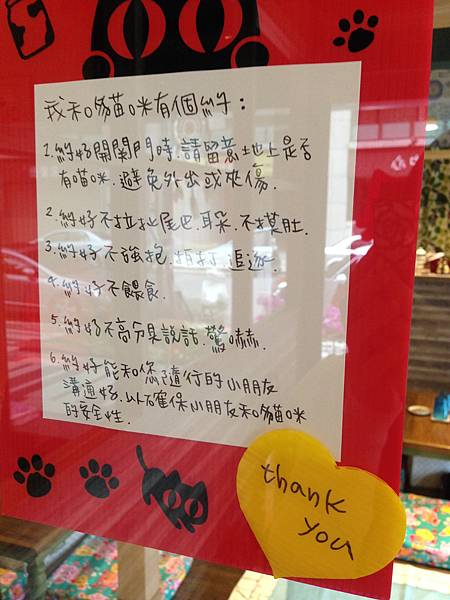 我和喵喵咪有個約：
1.約好開關門時.請留意地上是否
有喵咪.避免外出或夾傷.
2.約好不拉扯尾巴.耳朵.不摸肚.
3.約好不強抱.拍打.追逐.
4.約好不餵食.
5.約好不高分貝說話.驚嚇.
6.約好能和您隨行的小朋友
溝通好.以確保小朋友和貓咪
的安全性.
thank
you